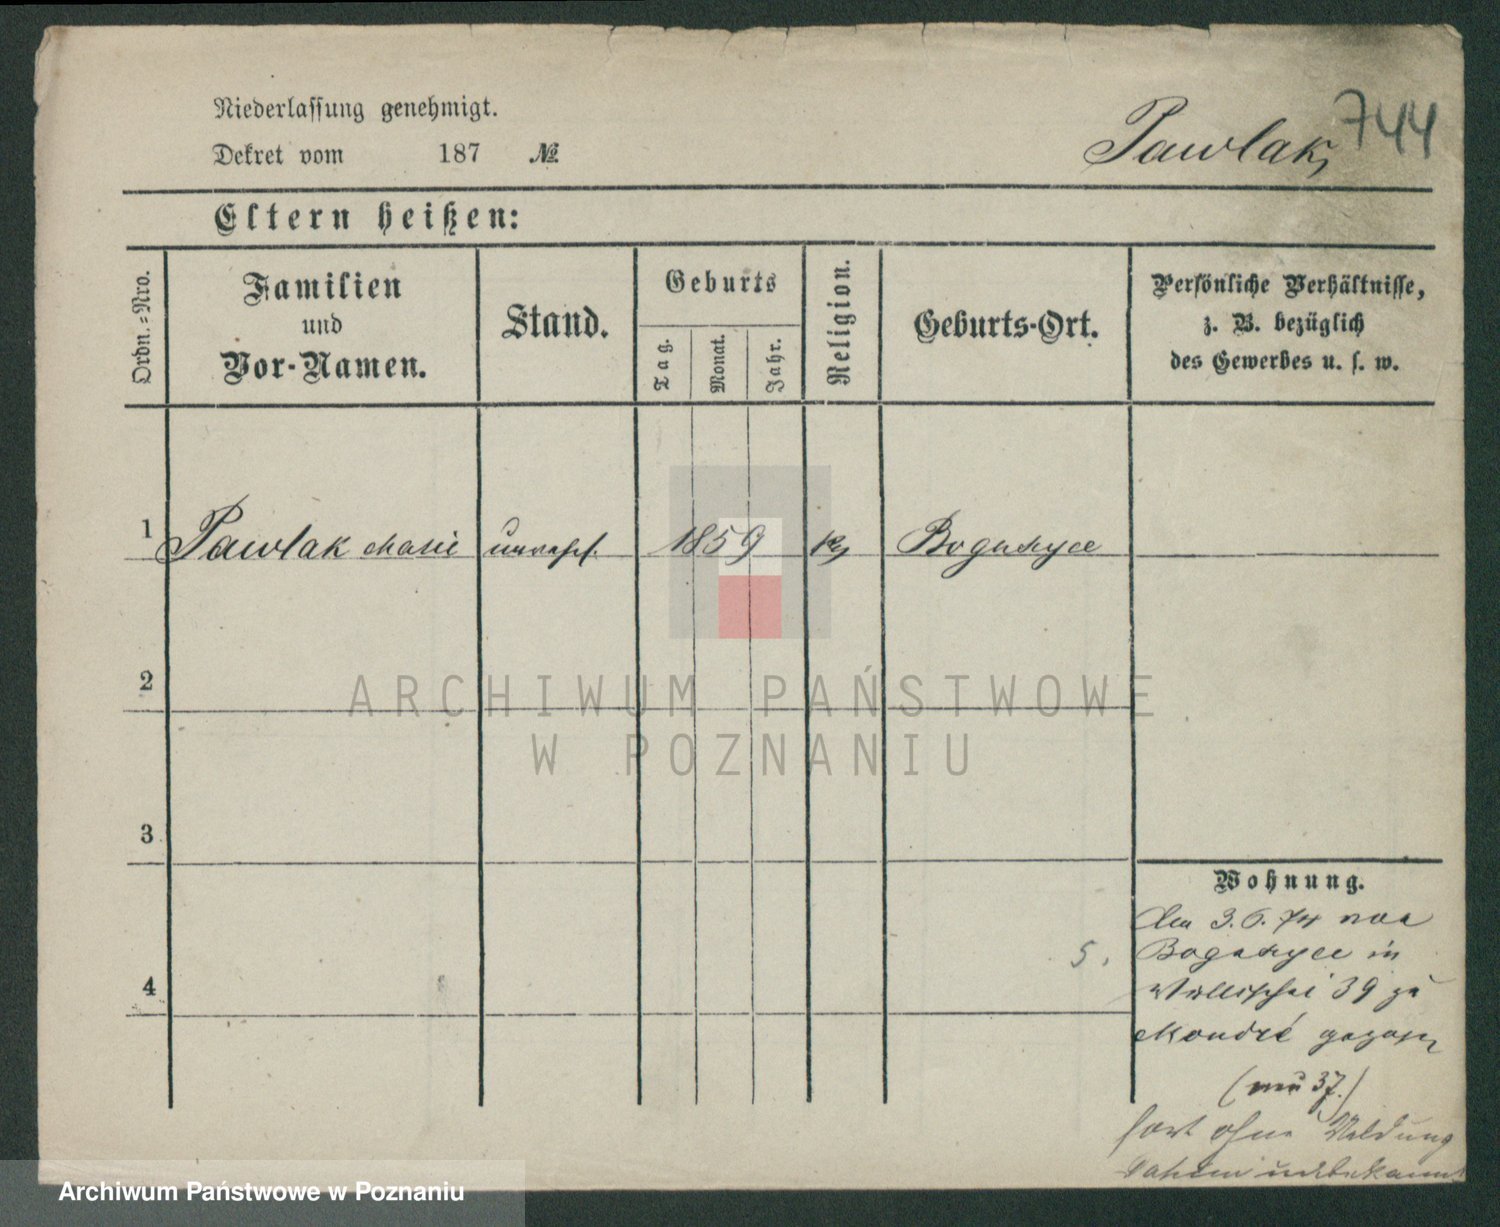 Niederlassung genehmigt.
Dekret vom 187 №
Pawlak, 744
Eltern heißen:
Ordn.=Nro.
Familien
und
Vor-Namen.
Stand.
Geburts
Tag.
Monat.
Jahr.
Religion.
Geburts-Ort.
Persönliche Verhältnisse,
z. B. bezüglich
des Gewerbes u. s. w.
1 Pawlak Marie unverh. 1859 k,
2
ARCHIWUM PAŃSTWOWE
W POZNANIU
3
Wohnung.
Am 3.6.74 von
in
5.
4
Wallischei 39 zu
Mondré gezogen
(nun 37.)
fort ohne Meldung
wohin unbekannt
Archiwum Państwowe w Poznaniu